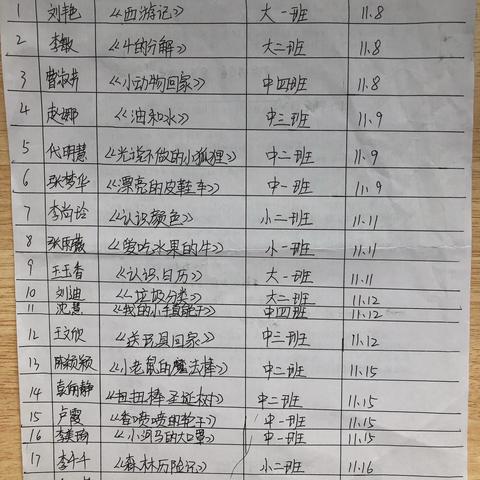 1 刘艳 《西游记》 大一班 11.8
2 李敏 《4的分解》 大二班 11.8
3 曹淑芳 《小动物回家》 中四班 11.8
4 赵娜 《油和水》 中三班 11.9
5 代明慧 《光说不做的小狐狸》 中二班 11.9
6 张梦华 《漂亮的皮鞋车》 中一班 11.9
7 李尚玲 《认识颜色》 小二班 11.11
8 张雨薇 《爱吃水果的牛》 小一班 11.11
9 王玉香 《认识日历》 大一班 11.11
10 刘迪 《垃圾分类》 大二班 11.12
11 沈慧 《我的小手真能干》 中四班 11.12
12 王文欣 《送玩具回家》 中三班 11.12
13 陈颖颖 《小老鼠的魔法棒》 中二班 11.15
14 静 《扭扭棒圣诞树》 中二班 11.15
15 卢霞 《香喷喷的轮子》 中一班 11.15
16 李美 《小河马的大口罩》 中一班 11.15
17 李千千 《森林历险记》 小二班 11.16